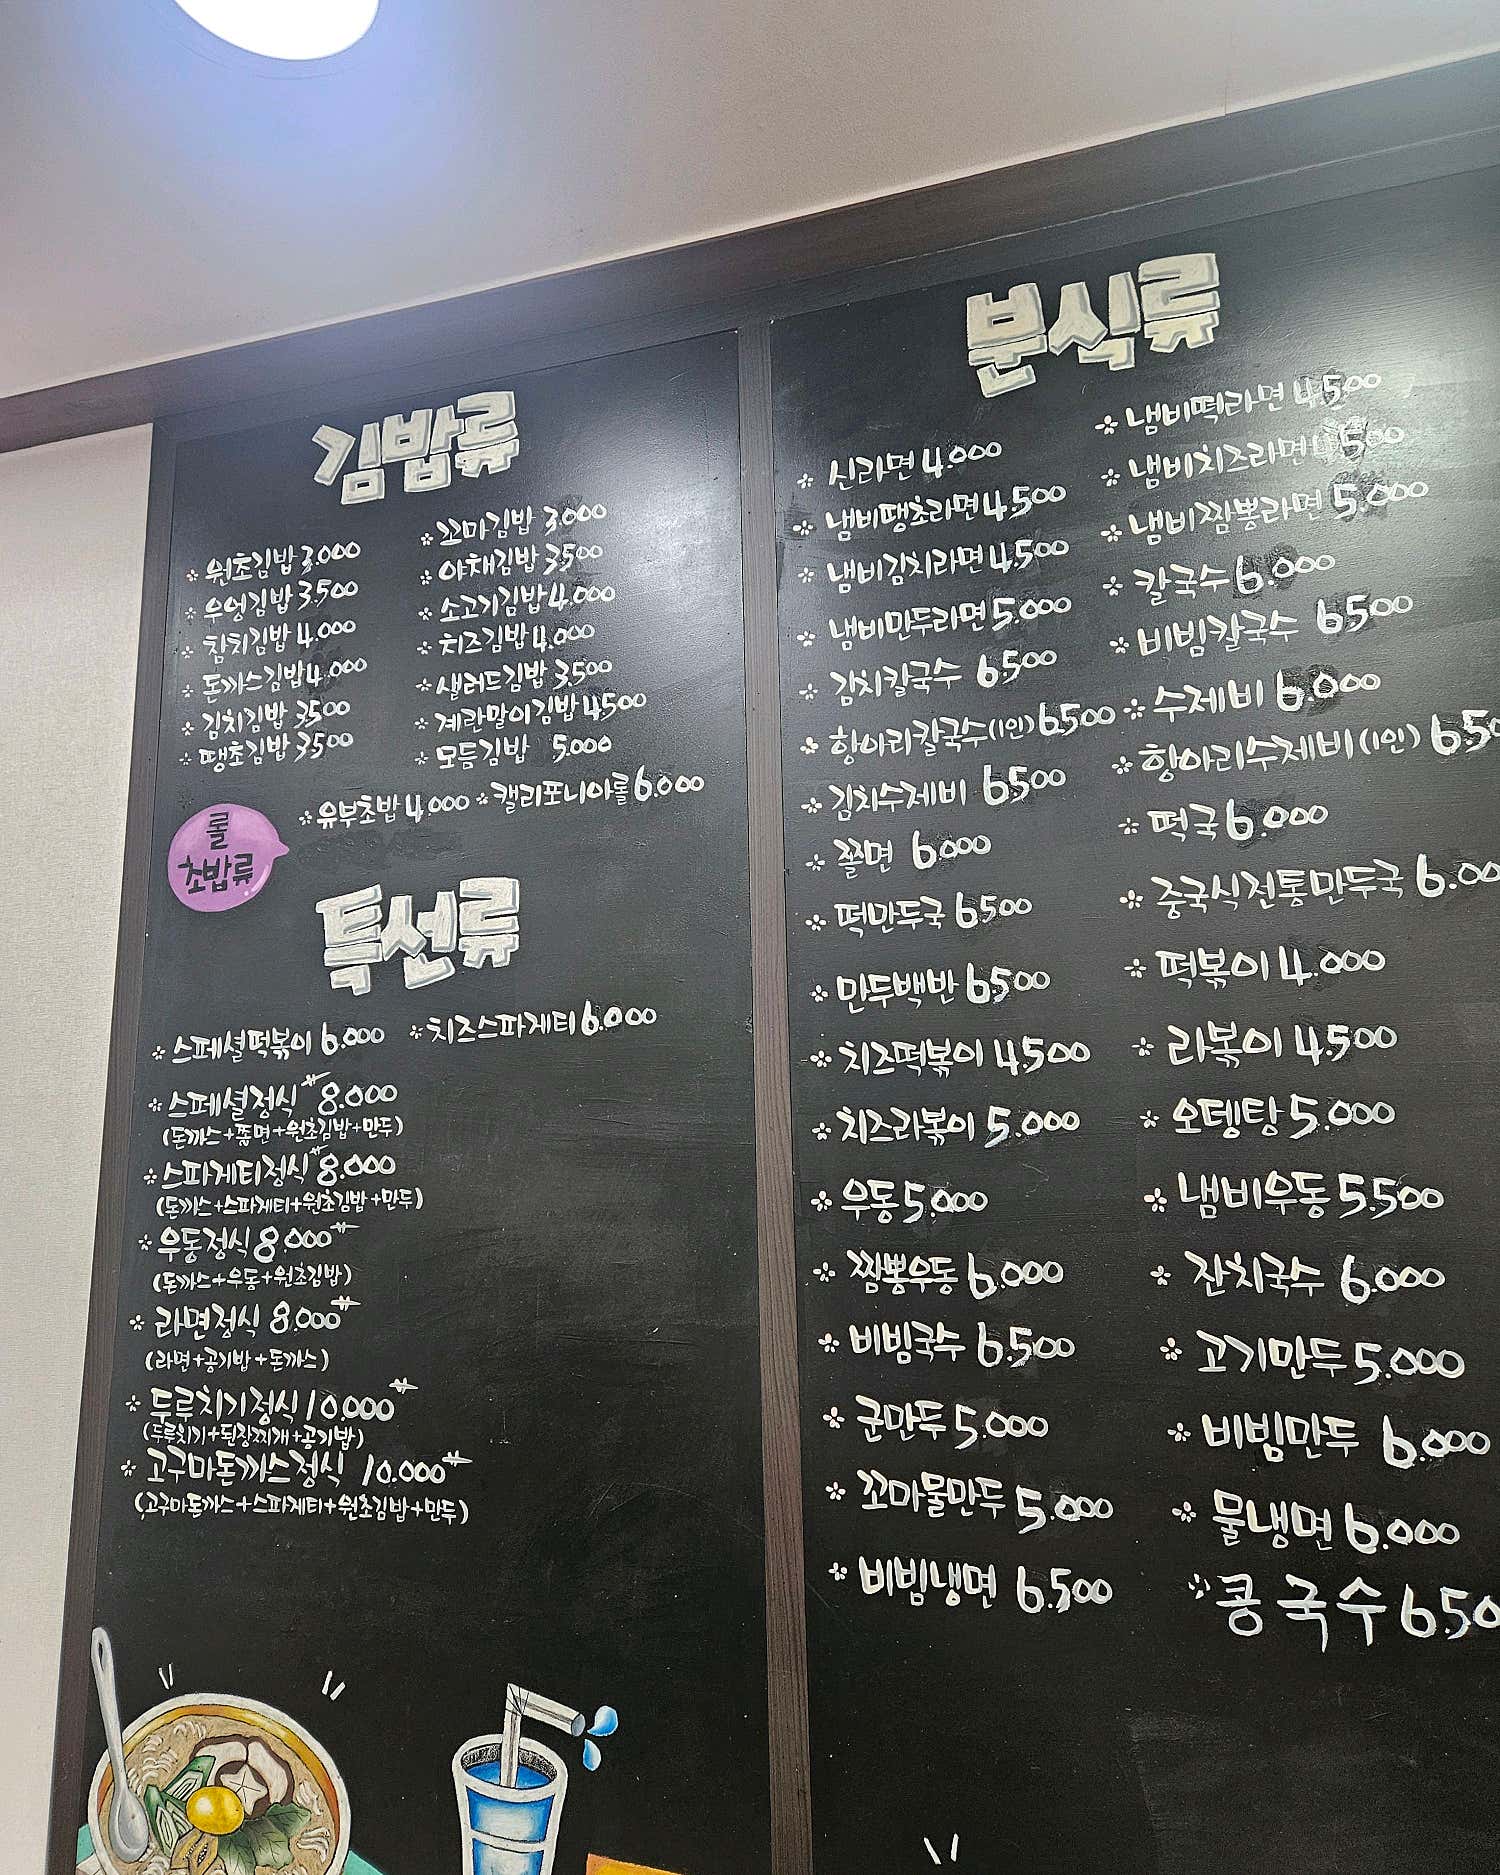 김밥류
* 원초김밥 3.000
* 우엉김밥 3.500
* 참치김밥 4.000
* 돈까스김밥 4.000
* 김치김밥 3.500
* 땡초김밥 3.500
* 꼬마김밥 3.000
* 야채김밥 3.500
* 소고기김밥 4.000
* 치즈김밥 4.000
* 샐러드김밥 3.500
* 계란말이김밥 4.500
* 모듬김밥 5.000
롤
초밥류
* 유부초밥 4.000 * 캘리포니아롤 6.000
특선류
* 스페셜떡볶이 6.000 * 치즈스파게티 6.000
* 스페셜정식 8.000
(돈까스+쫄면+원초김밥+만두)
* 스파게티정식 8.000
(돈까스+스파게티+원초김밥+만두)
* 우동정식 8.000
(돈까스+우동+원초김밥)
* 라면정식 8.000
(라면+공기밥+돈까스)
* 두루치기정식 10.000
(두루치기+된장찌개+공기밥)
* 고구마돈까스정식 10.000
(고구마돈까스+스파게티+원초김밥+만두)
분식류
* 신라면 4.000
* 냄비땡초라면 4.500
* 냄비김치라면 4.500
* 냄비만두라면 5.000
* 김치칼국수 6.500
* 항아리칼국수(1인) 6.500
* 김치수제비 6.500
* 쫄면 6.000
* 떡만두국 6.500
* 만두백반 6.500
* 치즈떡볶이 4.500
* 치즈라볶이 5.000
* 우동 5.000
* 짬뽕우동 6.000
* 비빔국수 6.500
* 군만두 5.000
* 꼬마물만두 5.000
* 비빔냉면 6.500
* 냄비떡라면 4.500
* 냄비치즈라면 4.500
* 냄비짬뽕라면 5.000
* 칼국수 6.000
* 비빔칼국수 6.500
* 수제비 6.000
* 항아리수제비(1인) 6.50
* 떡국 6.000
* 중국식전통만두국 6.00
* 떡볶이 4.000
* 라볶이 4.500
* 오뎅탕 5.000
* 냄비우동 5.500
* 잔치국수 6.000
* 고기만두 5.000
* 비빔만두 6.000
* 물냉면 6.000
* 콩국수 6.50